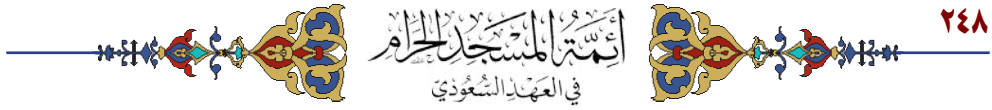 ٢٤٨
أَئِمَّةُ المَسْجِدِ الحَرَامِ
في العَهْدِ السُّعُوْدِيّ